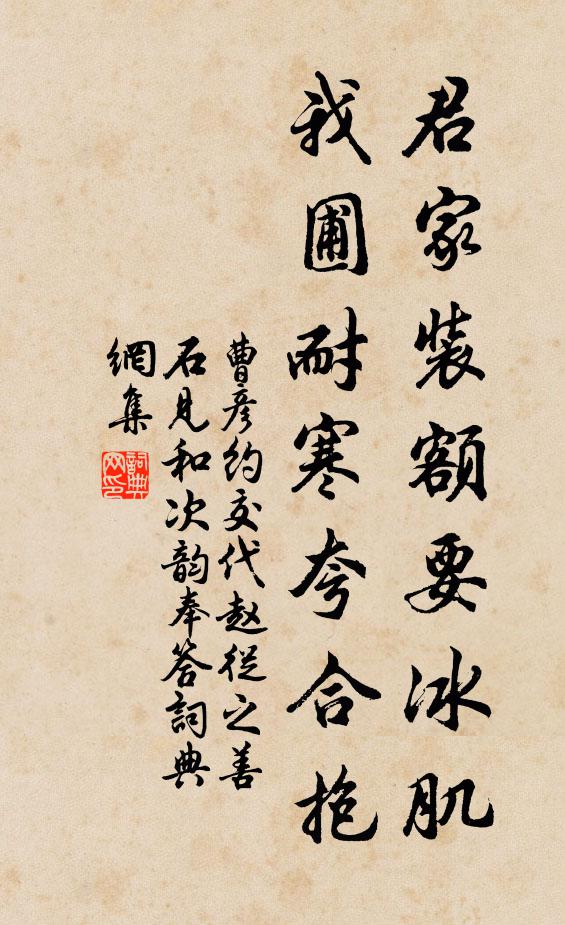 君家装額要冰肌
我圃耐寒夸合抱
曹彦约交代赵從之善
石見和次韵奉答詞典
網集
詞典
网印